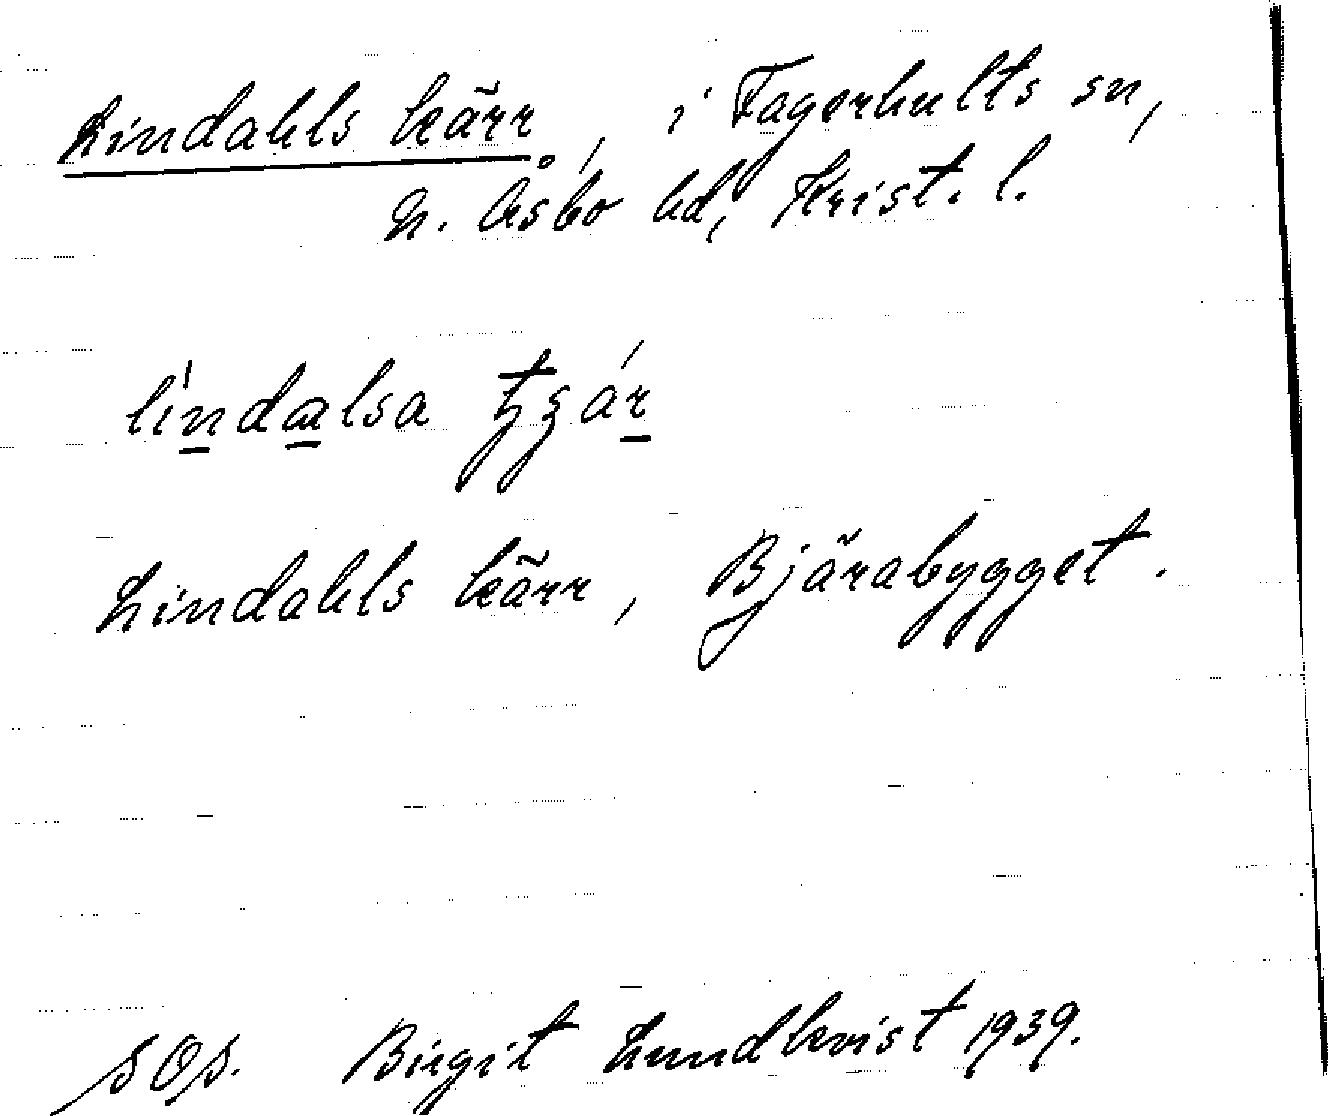 Lindahls kärr, i Fagerhults sn,
N. Åsbo hd, Krist. l.
Lindahls kärr, Bjärabygget.
SOS. Birgit Lundkvist 1939.